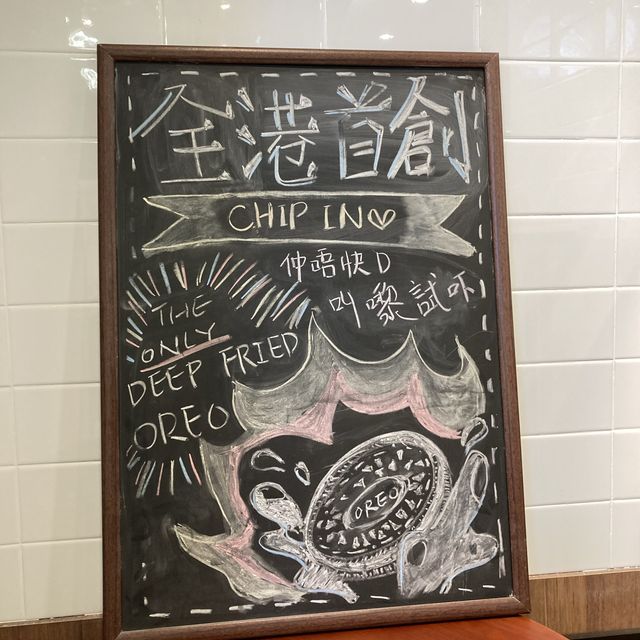 全港首創
CHIP IN♡
仲唔快D
叫嚟試吓
THE
ONLY
DEEP FRIED
OREO
OREO